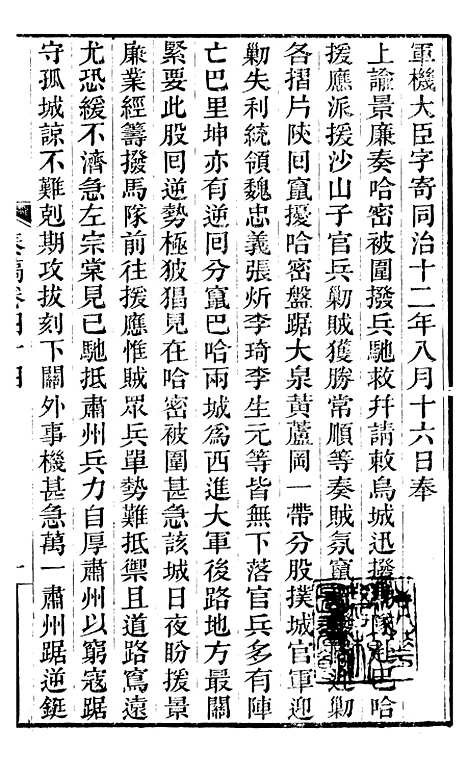 軍機大臣字寄同治十二年八月十六日奉
上諭景廉奏哈密被圍撥兵馳救幷請敕烏城迅撥巴哈
援應派援沙山子官兵勦賊獲勝常順等奏賊氛竄勦
各摺片陝回竄擾哈密盤踞大泉黃蘆岡一帶分股撲城官軍迎
勦失利統領魏忠義張炘李琦李生元等皆無下落官兵多有陣
亡巴里坤亦有逆回分竄巴哈兩城爲西進大軍後路地方最關
緊要此股回逆勢極狓猖見在哈密被圍甚急該城日夜盼援景
廉業經籌撥馬隊前往援應惟賊眾兵單勢難抵禦且道路寫遠
尤恐緩不濟急左宗棠見已馳抵肅州兵力自厚肅州以窮寇踞
守孤城諒不難剋期攻拔刻下關外事機甚急萬一肅州踞逆鋌
奏稿卷四十四
一